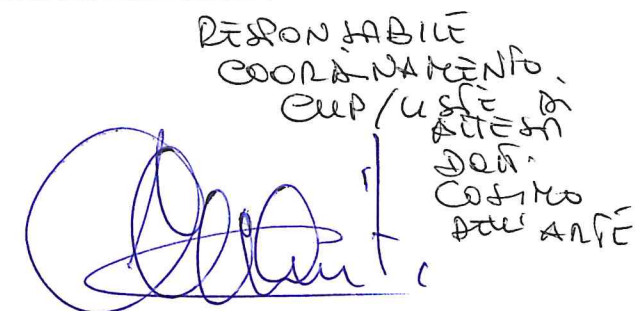 RESPONSABILE
COORDINAMENTO
CUP/LISTE DI
ATTESA
DOTT.
COSIMO
DELL'ARTE